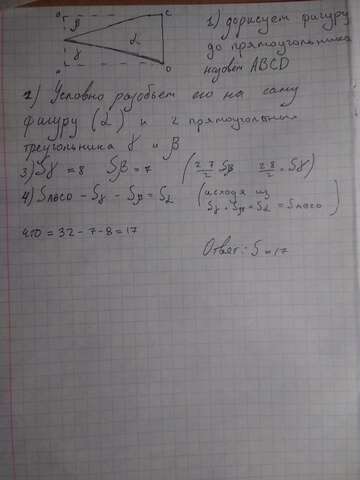 B C
β
α
γ
A D
1) дорисуем фигуру
до прямоугольника
назовем ABCD
2) Условно разобьем его на саму
фигуру (α) и 2 прямоугольных
треугольника γ и β
3) Sγ = 8 Sβ = 7 (2·7/2 = Sβ 2·8/2 = Sγ)
4) SABCD - Sγ - Sβ = Sα (исходя из
Sγ + Sβ + Sα = SABCD)
что = 32 - 7 - 8 = 17
Ответ: S = 17